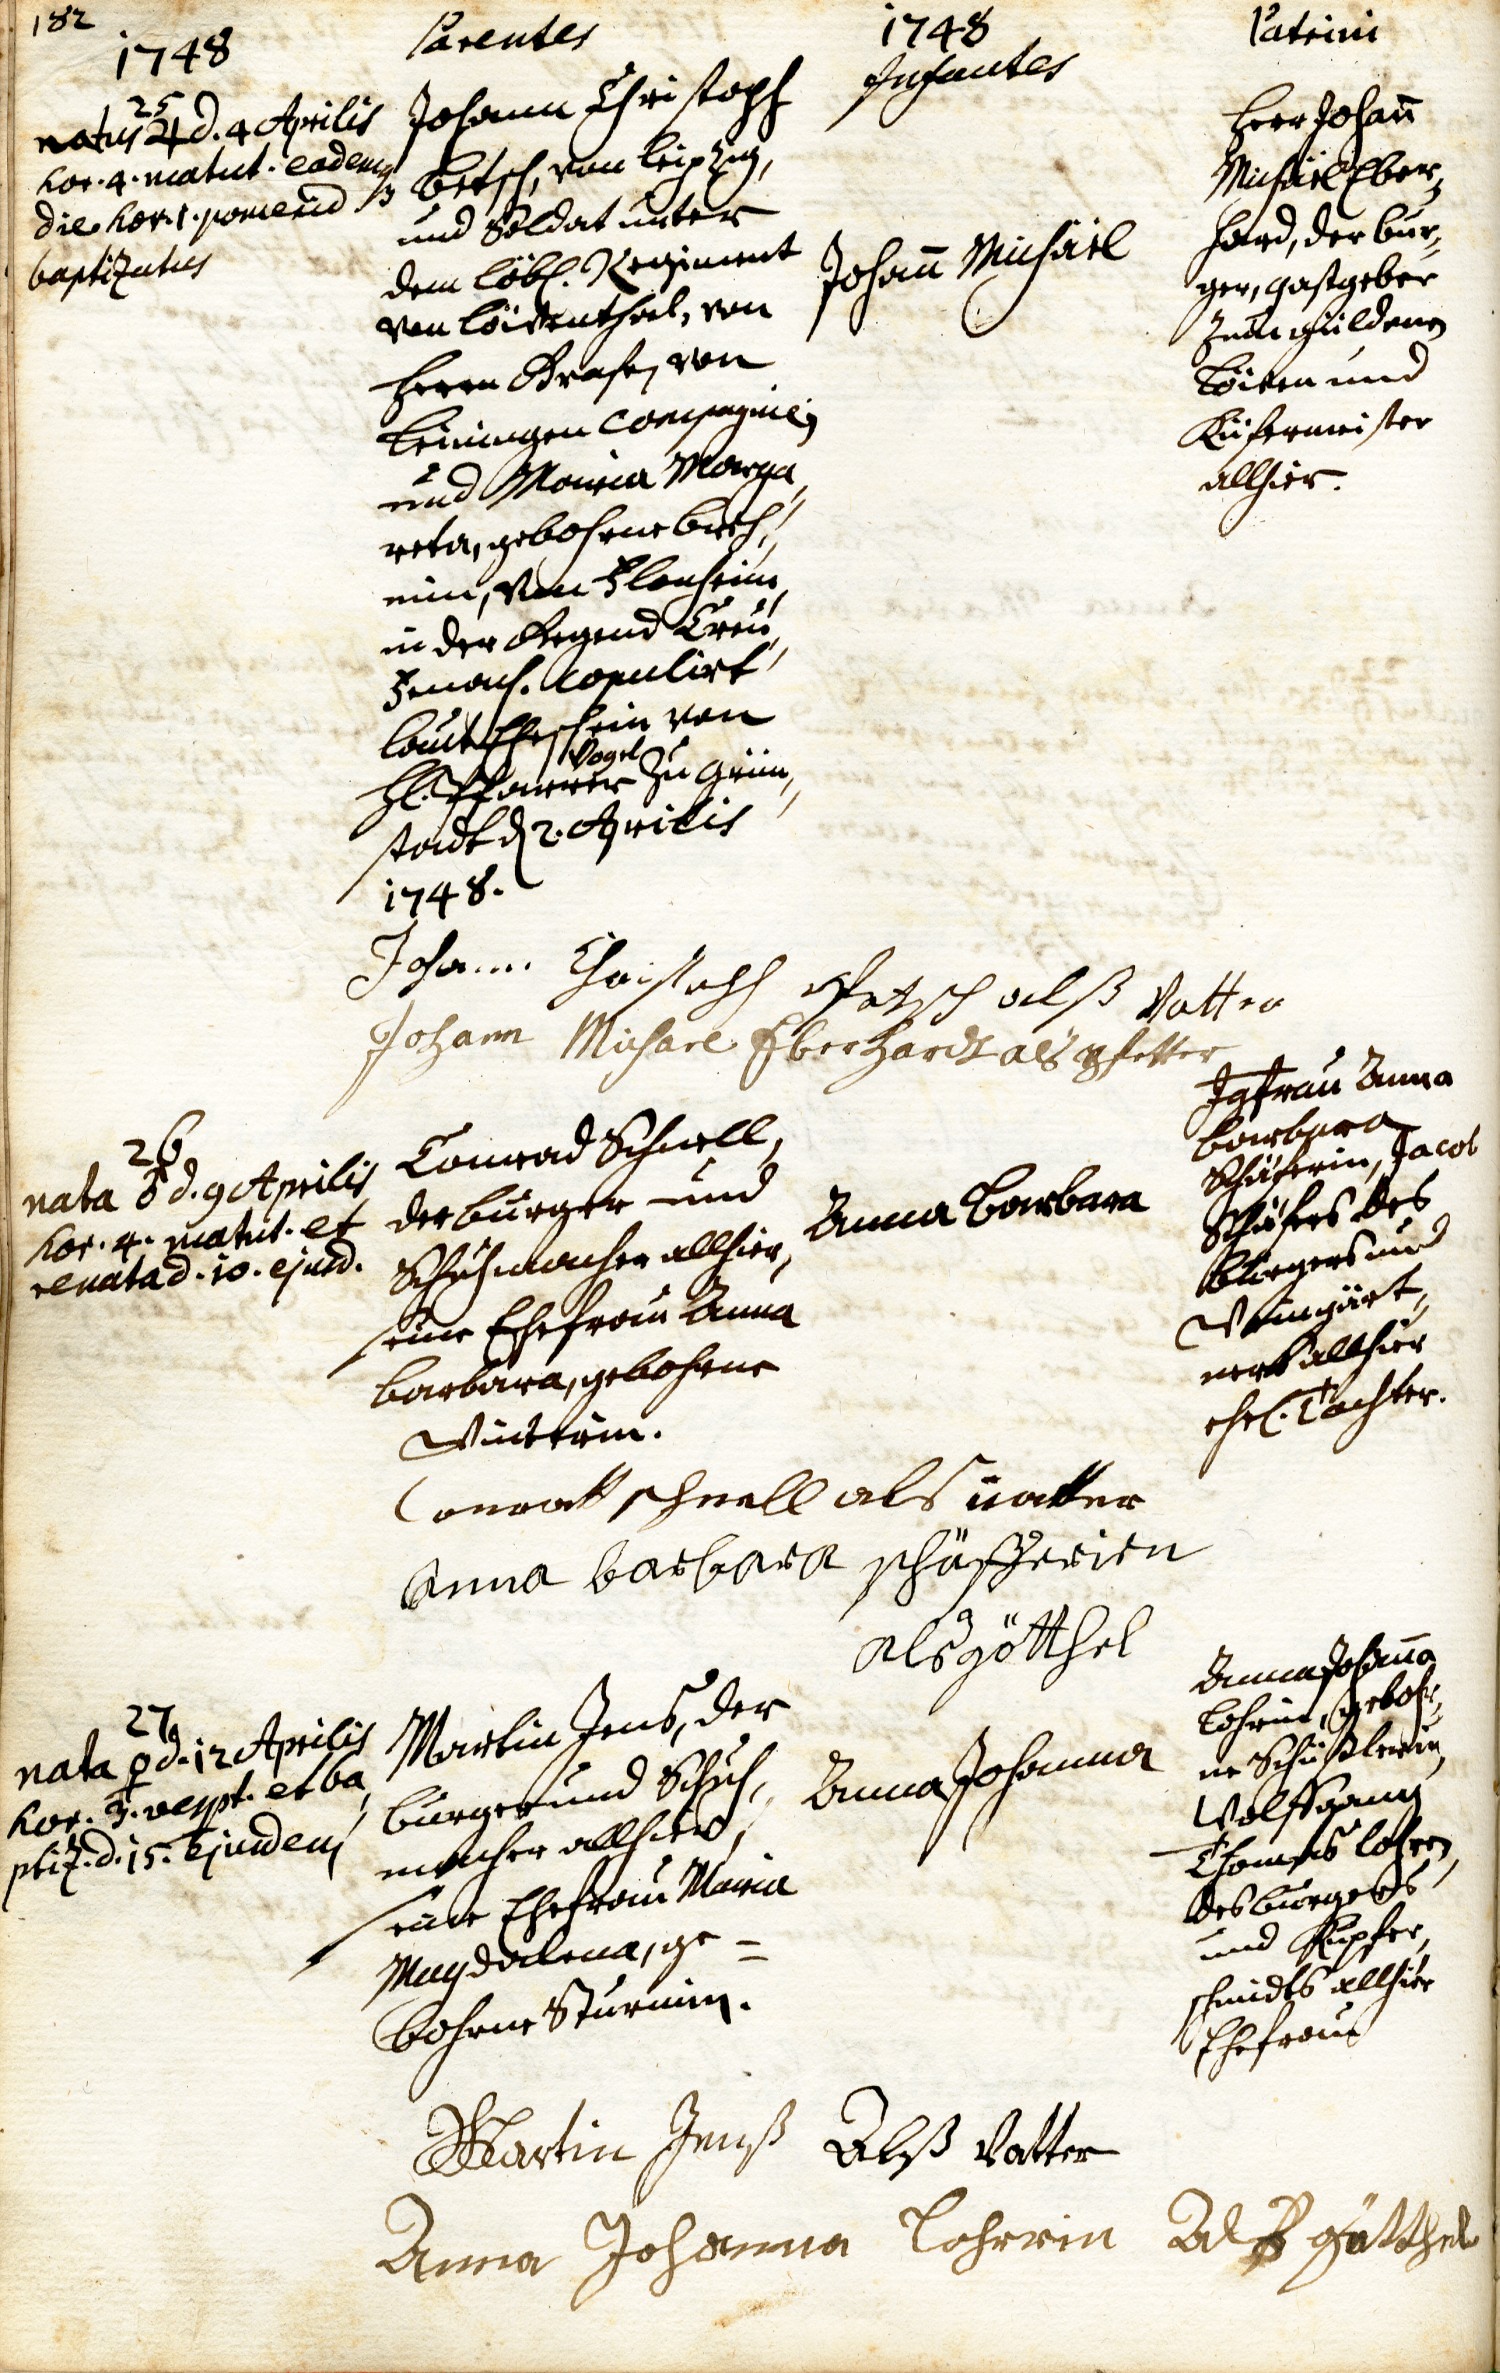 182
1748
Parentes
1748
Infantes
Patrini
25
natus ♃ d. 4 Aprilis
hor. 4. matut. eadem
die hor. 1. pomerid
baptizatus
Johann Christoph
Betsch, von Leipzig,
und Soldat unter
dem löbl. Regiment
von Löwenthal, von
Herrn Grafen von
Leiningen Compagnie,
und Maria Marga,
reta, gebohrne
nin, von Flonheim,
in der Gegend Creu,
zenach. copulirt
laut Eheschein von
H. Pfarrer Vogel zu Grün,
stadt d 2. Aprilis
1748.
Johann Michäel
Herr Johañ
Michäel Eber,
hard, der bur,
ger, gastgeber
zum güldenen
Löwen und
Küfermeister
allhier.
Johann Christoph Petsch alß Vatter
Johann Michael Eberhardt als pfetter
26
nata ♂ d. 9 Aprilis
hor. 4. matut. et
renata d. 10. ejusd.
Conrad Schnell,
der burger und
Schuhmacher allhier,
seine Ehefrau Anna
Barbara, gebohrne
Winterin.
Anna Barbara
Jgfrau Anna
Barbara
Schäferin, Jacob
Schäfers des
Burgers und
Weingärt,
ners allhier
ehel. Tochter.
Conratt schnell als vatter
anna barbara schäfferien
als götthel
27
nata ♀ d. 12 Aprilis
hor. 3. vespt. et ba,
ptiz. d. 15. Ejusdem
Martin Jens, der
burger und Schuh,
macher allhier,
seine Ehefrau Maria
Magdalena, ge=
bohrne Sturmin.
Anna Johanna
Anna Johaña
Lohrin, gebohr,
ne Schüßlerin,
Wolffgang
Thomas Lohren,
des burgers
und Kupfer,
schmidts allhier
Ehefrau
Martin Jenß Alß Vatter
Anna Johanna Lohrrin Alß götthel